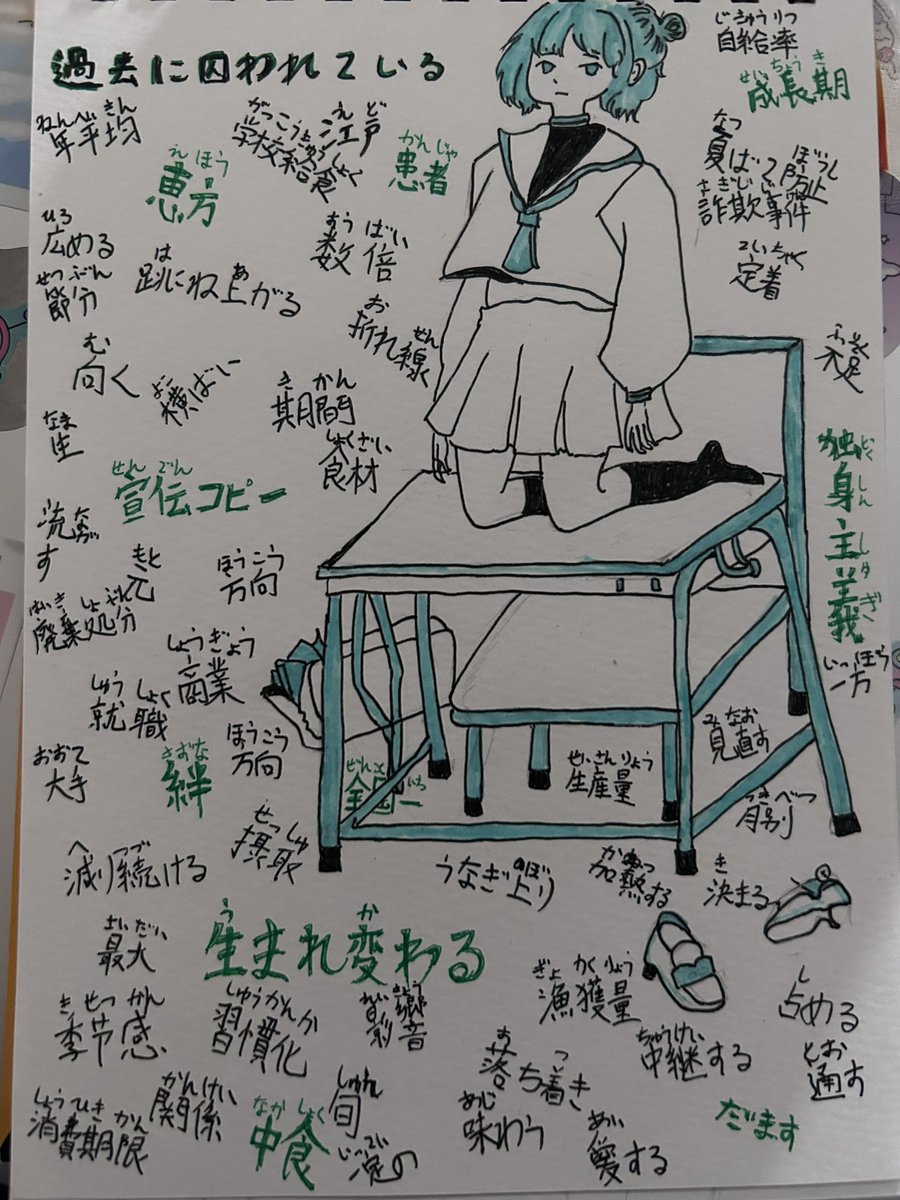 過去に囚われている
じきゅうりつ
自給率
せいちょうき
成長期
ねんへいきん
年平均
がっこうきゅうしょく
学校給食
えど
江戸
かんじゃ
患者
えほう
恵方
なつ
夏ばて
ぼうし
防止
さぎじけん
詐欺事件
ひろ
広める
すうばい
数倍
ていちゃく
定着
せつぶん
節分
は あ
跳ね上がる
お せん
折れ線
む
向く
よこ
横ばい
きかん
期間
ふそく
不足
なま
生
しょくざい
食材
せんでん
宣伝コピー
どくしんしゅぎ
独身主義
なが
流す
もと
元
ほうこう
方向
はいきしょぶん
廃棄処分
しょうぎょう
商業
いっぽう
一方
しゅうしょく
就職
みなお
見直す
おおて
大手
きずな
絆
ほうこう
方向
全国一
せいさんりょう
生産量
つきべつ
月別
せっしゅ
摂取
へ つづ
減り続ける
うなぎ上り
のぼ
かねつ
加熱する
き
決まる
さいだい
最大
う か
生まれ変わる
ぎょかくりょう
漁獲量
し
占める
きせつかん
季节感
しゅうかんか
習慣化
えいきょう
お つ
落ち着き
ちゅうけい
中継する
とお
通す
しょうひきかん
消費期限
かんけい
関係
なかしょく
中食
しゅん
旬
いってい
あじ
味わう
あい
愛する
だます